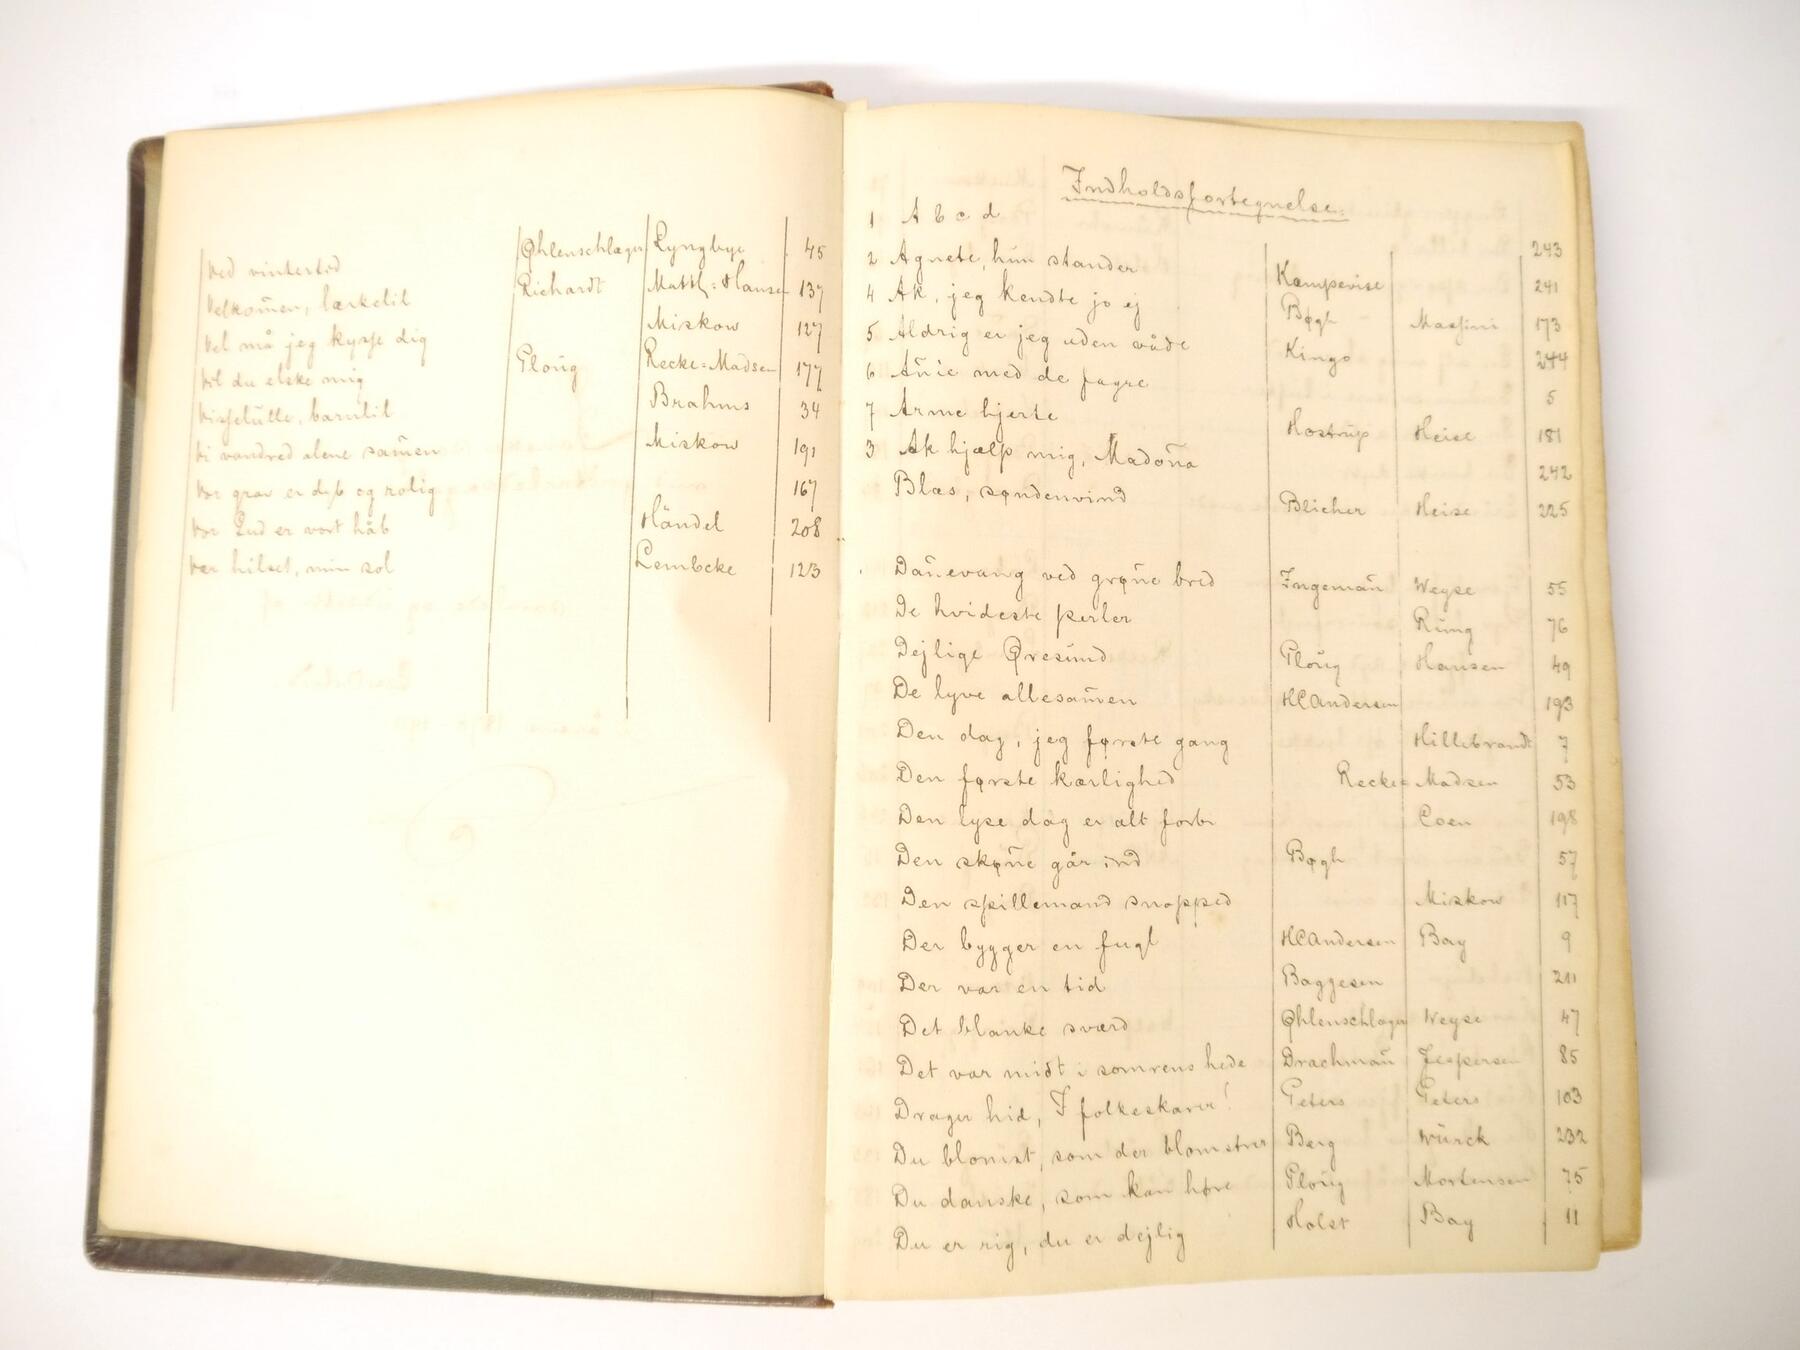 Ved vintertid Øhlenschlæger Lyngbye 45
Velkom̄en, lærkelil Richardt Matth=Hansen 137
Vel må jeg kysse dig Miskow 127
Vil du elske mig Ploug Recke=Madsen 177
Visselulle, barnlil Brahms 34
Vi vandred alene sam̄en Miskow 191
Vor grav er dyb og rolig 167
Vor Gud er vort håb Händel 208
Vær hilset, min sol Lembcke 123
Indholdsfortegnelse.
1 A b c d 243
2 Agnete, hun stander Kæmpevise 241
4 Ak, jeg kendte jo ej Bøgh Massini 173
5 Aldrig er jeg uden våde Kingo 244
6 An̄ie med de fagre 5
7 Arme hjerte Hostrup Heise 181
3 Ak hjælp mig, Madon̄a 242
Blæs, søndenvind Blicher Heise 225
Dan̄evang ved grøn̄e bred Ingeman̄ Weyse 55
De hvideste perler Rung 76
Dejlige Øresund Ploug Hansen 49
De lyve allesam̄en HCAndersen 193
Den dag, jeg første gang Hillebrandt 7
Den første kærlighed Recke=Madsen 53
Den lyse dag er alt forbi Coen 198
Den skøn̄e går ind Bøgh 57
Den spillemand snapped Miskow 117
Der bygger en fugl HCAndersen Bay 9
Der var en tid Baggesen 211
Det blanke sværd Øhlenschlæger Weyse 47
Det var midt i somrens hede Drachman̄ Jespersen 85
Drager hid, I folkeskarer! Peters Peters 103
Du blomst, som der blomstrer Berg Würck 232
Du danske, som kan høre Ploug Mortensen 75
Du er rig, du er dejlig Holst Bay 11